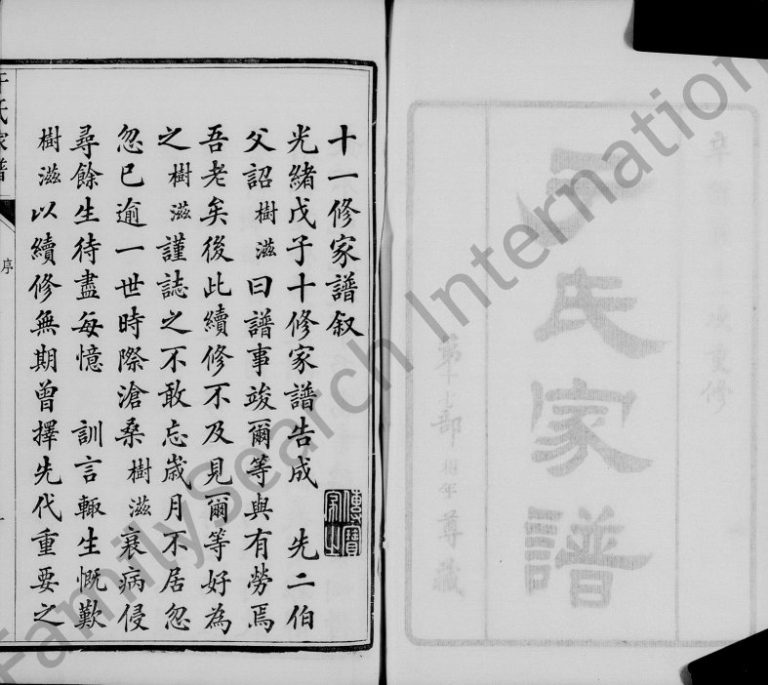 重修
氏家譜
第十部 尊藏
十一修家譜叙
光緒戊子十修家譜告成 先二伯
父詔樹滋曰譜事竣爾等與有勞焉
吾老矣後此續修不及見爾等好為
之樹滋謹誌之不敢忘歲月不居忽
忽已逾一世時際滄桑樹滋衰病侵
尋餘生待盡每憶 訓言輙生慨歎
樹滋以續修無期曾擇先代重要之
氏家譜
序
FamilySearch International